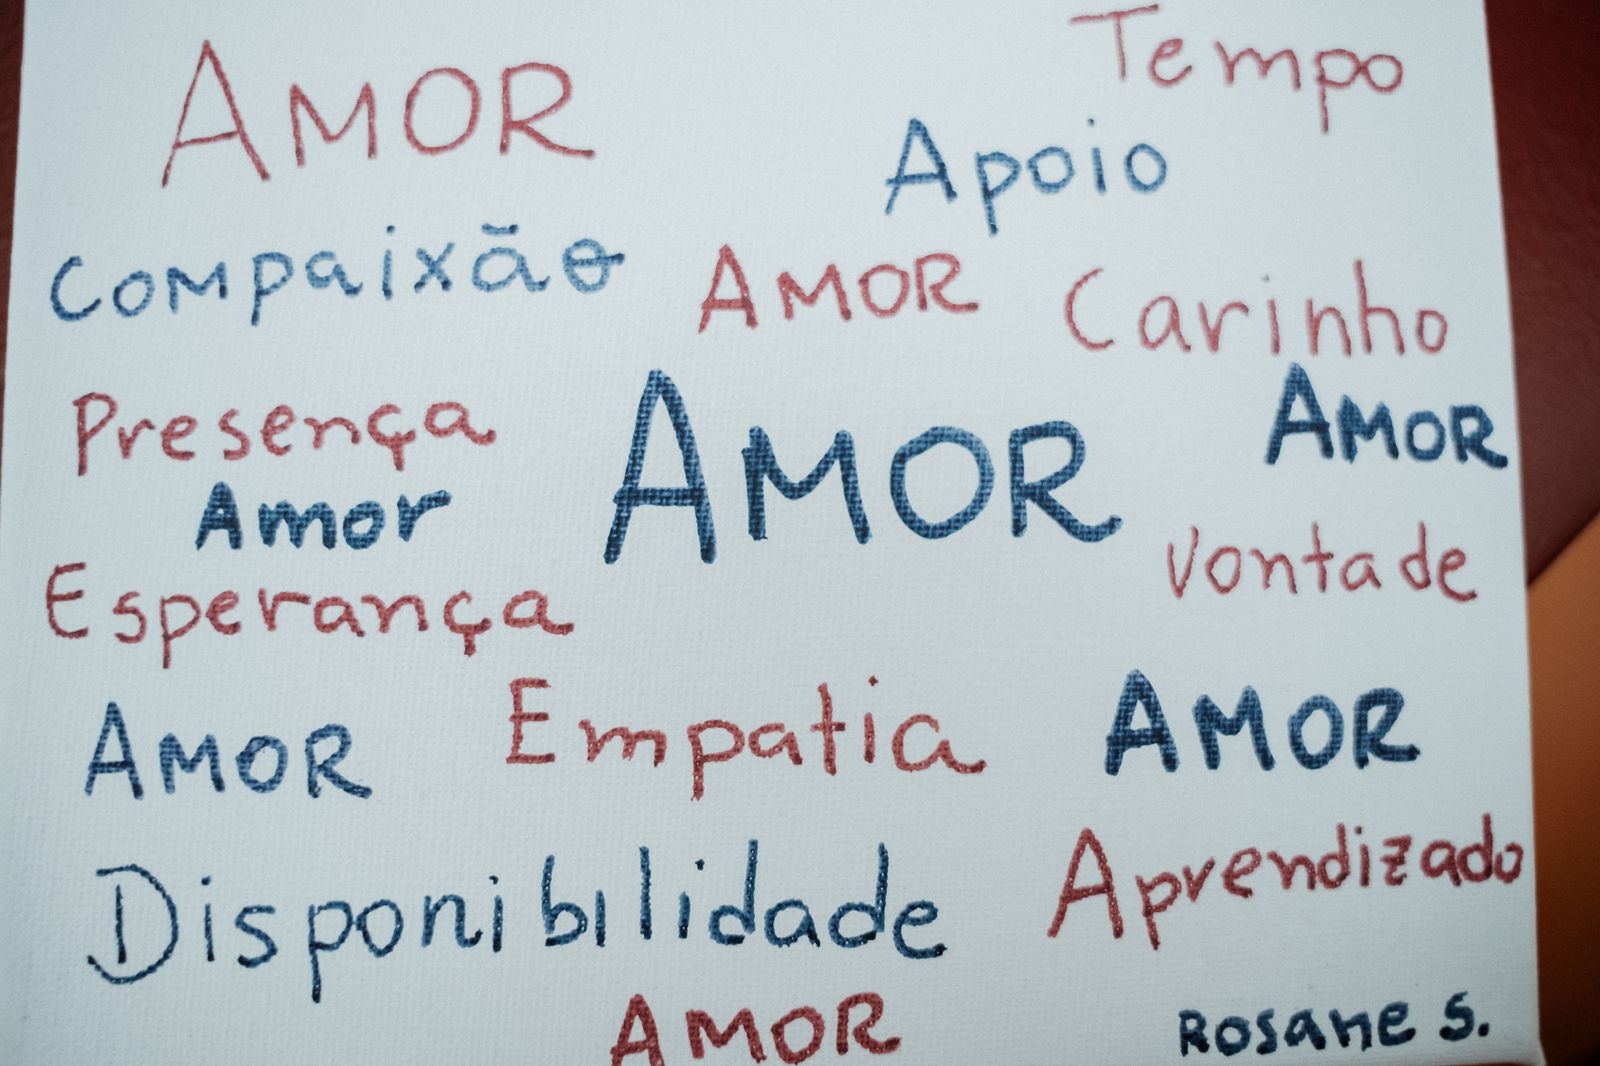 AMOR
Tempo
Apoio
Compaixão
AMOR
Carinho
Presença
AMOR
AMOR
Amor
Vontade
Esperança
AMOR
Empatia
AMOR
Disponibilidade
Aprendizado
AMOR
Rosane S.